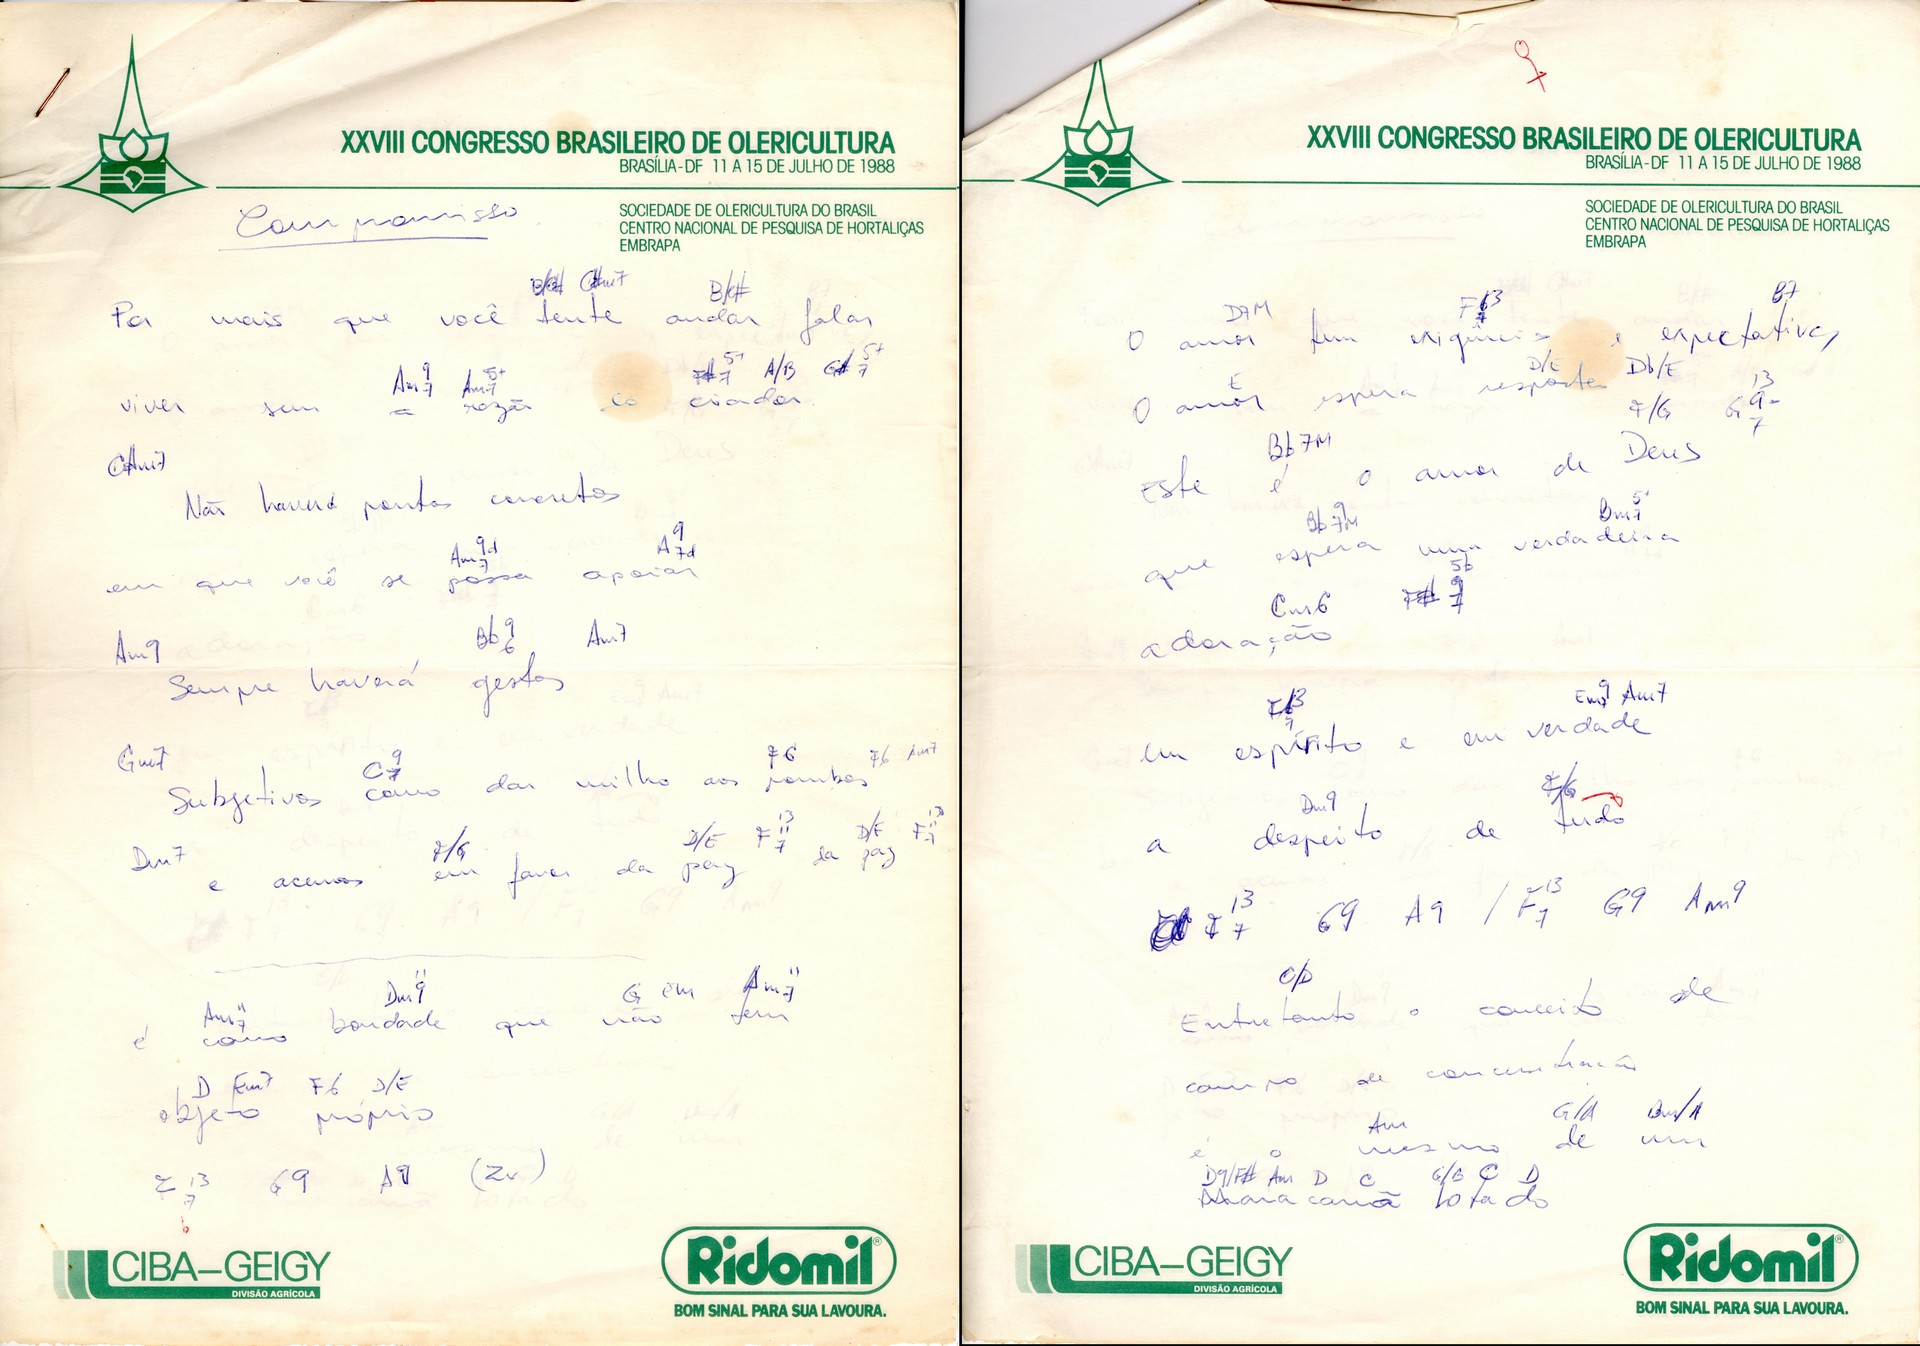 XXVIII CONGRESSO BRASILEIRO DE OLERICULTURA
BRASÍLIA-DF 11 A 15 DE JULHO DE 1988
SOCIEDADE DE OLERICULTURA DO BRASIL
CENTRO NACIONAL DE PESQUISA DE HORTALIÇAS
EMBRAPA
Compromisso
C#m7 B/C#
Por mais que você tente andar falar
Am7 9 Am7 5+ F#7 5+ A/B G#7 5+
viver sem a razão do criador
C#m7
Não haverá pontos concretos
Am7 9d A7d 9
em que você se possa apoiar
Am9 Bb6 9 Am7
Sempre haverá gestos
Gm7 C7 9 F6 F6 Am7
Subjetivos como dar milho aos pombos
Dm7 F/G D/E F7 11 13 D/E F7 11 13
e acenos em favor da paz da paz
Am7 11 Dm9 11 G em Am7 11
é como bondade que não tem
D Em7 F6 D/E
objeto próprio
F7 13 G9 A9 (2v)
CIBA–GEIGY
DIVISÃO AGRÍCOLA
Ridomil®
BOM SINAL PARA SUA LAVOURA.
XXVIII CONGRESSO BRASILEIRO DE OLERICULTURA
BRASÍLIA-DF 11 A 15 DE JULHO DE 1988
SOCIEDADE DE OLERICULTURA DO BRASIL
CENTRO NACIONAL DE PESQUISA DE HORTALIÇAS
EMBRAPA
D7M F7 13 B7
O amor tem exigências e expectativas
E D/E Db/E
O amor espera resposta
F/G G7 9- 13
Bb7M
Este é o amor de Deus
Bb7M 9 Bm7 5+
que espera uma verdadeira
Cm6 F#7 9 5b
adoração
F7 13 Em7 9 Am7
em espírito e em verdade
Dm9 F/G
a despeito de tudo
F7 13 G9 A9 / F7 13 G9 Am9
C/D
Entretanto o conceito de
campo de concentração
Am G/A Bm/A
é o mesmo de um
D9/F# Am D C G/B C D
Maracanã lotado
CIBA–GEIGY
DIVISÃO AGRÍCOLA
Ridomil®
BOM SINAL PARA SUA LAVOURA.